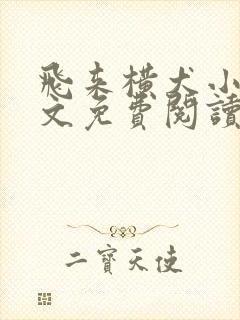 飛来橫犬小
文免費閱讀
二寶天使